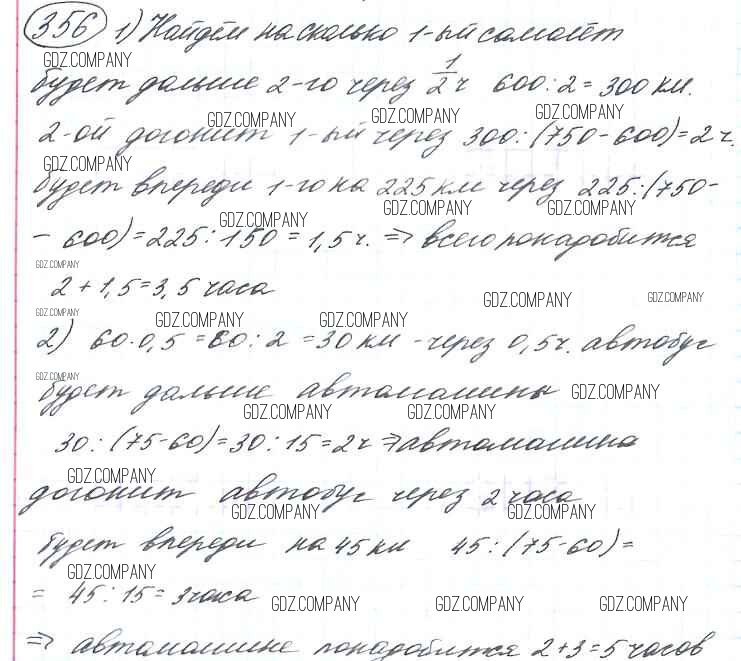 356 1) Найдём на сколько 1-ый самолёт
GDZ.COMPANY
будет дальше 2-го через 1/2 ч 600:2=300 км.
GDZ.COMPANY GDZ.COMPANY GDZ.COMPANY
2-ой догонит 1-ый через 300:(750-600)=2 ч.
GDZ.COMPANY
будет впереди 1-го на 225 км через 225:(750-
GDZ.COMPANY GDZ.COMPANY GDZ.COMPANY
- 600)=225:150=1,5 ч. => всего понадобится
GDZ.COMPANY
2+1,5=3,5 часа
GDZ.COMPANY GDZ.COMPANY
GDZ.COMPANY GDZ.COMPANY GDZ.COMPANY
2) 60·0,5=60:2=30 км - через 0,5 ч. автобус
GDZ.COMPANY
будет дальше автомашины GDZ.COMPANY
GDZ.COMPANY GDZ.COMPANY
30:(75-60)=30:15=2 ч => автомашина
GDZ.COMPANY
догонит автобус через 2 часа
GDZ.COMPANY GDZ.COMPANY
будет впереди на 45 км 45:(75-60)=
GDZ.COMPANY
= 45:15=3 часа
GDZ.COMPANY GDZ.COMPANY GDZ.COMPANY
=> автомашине понадобится 2+3=5 часов